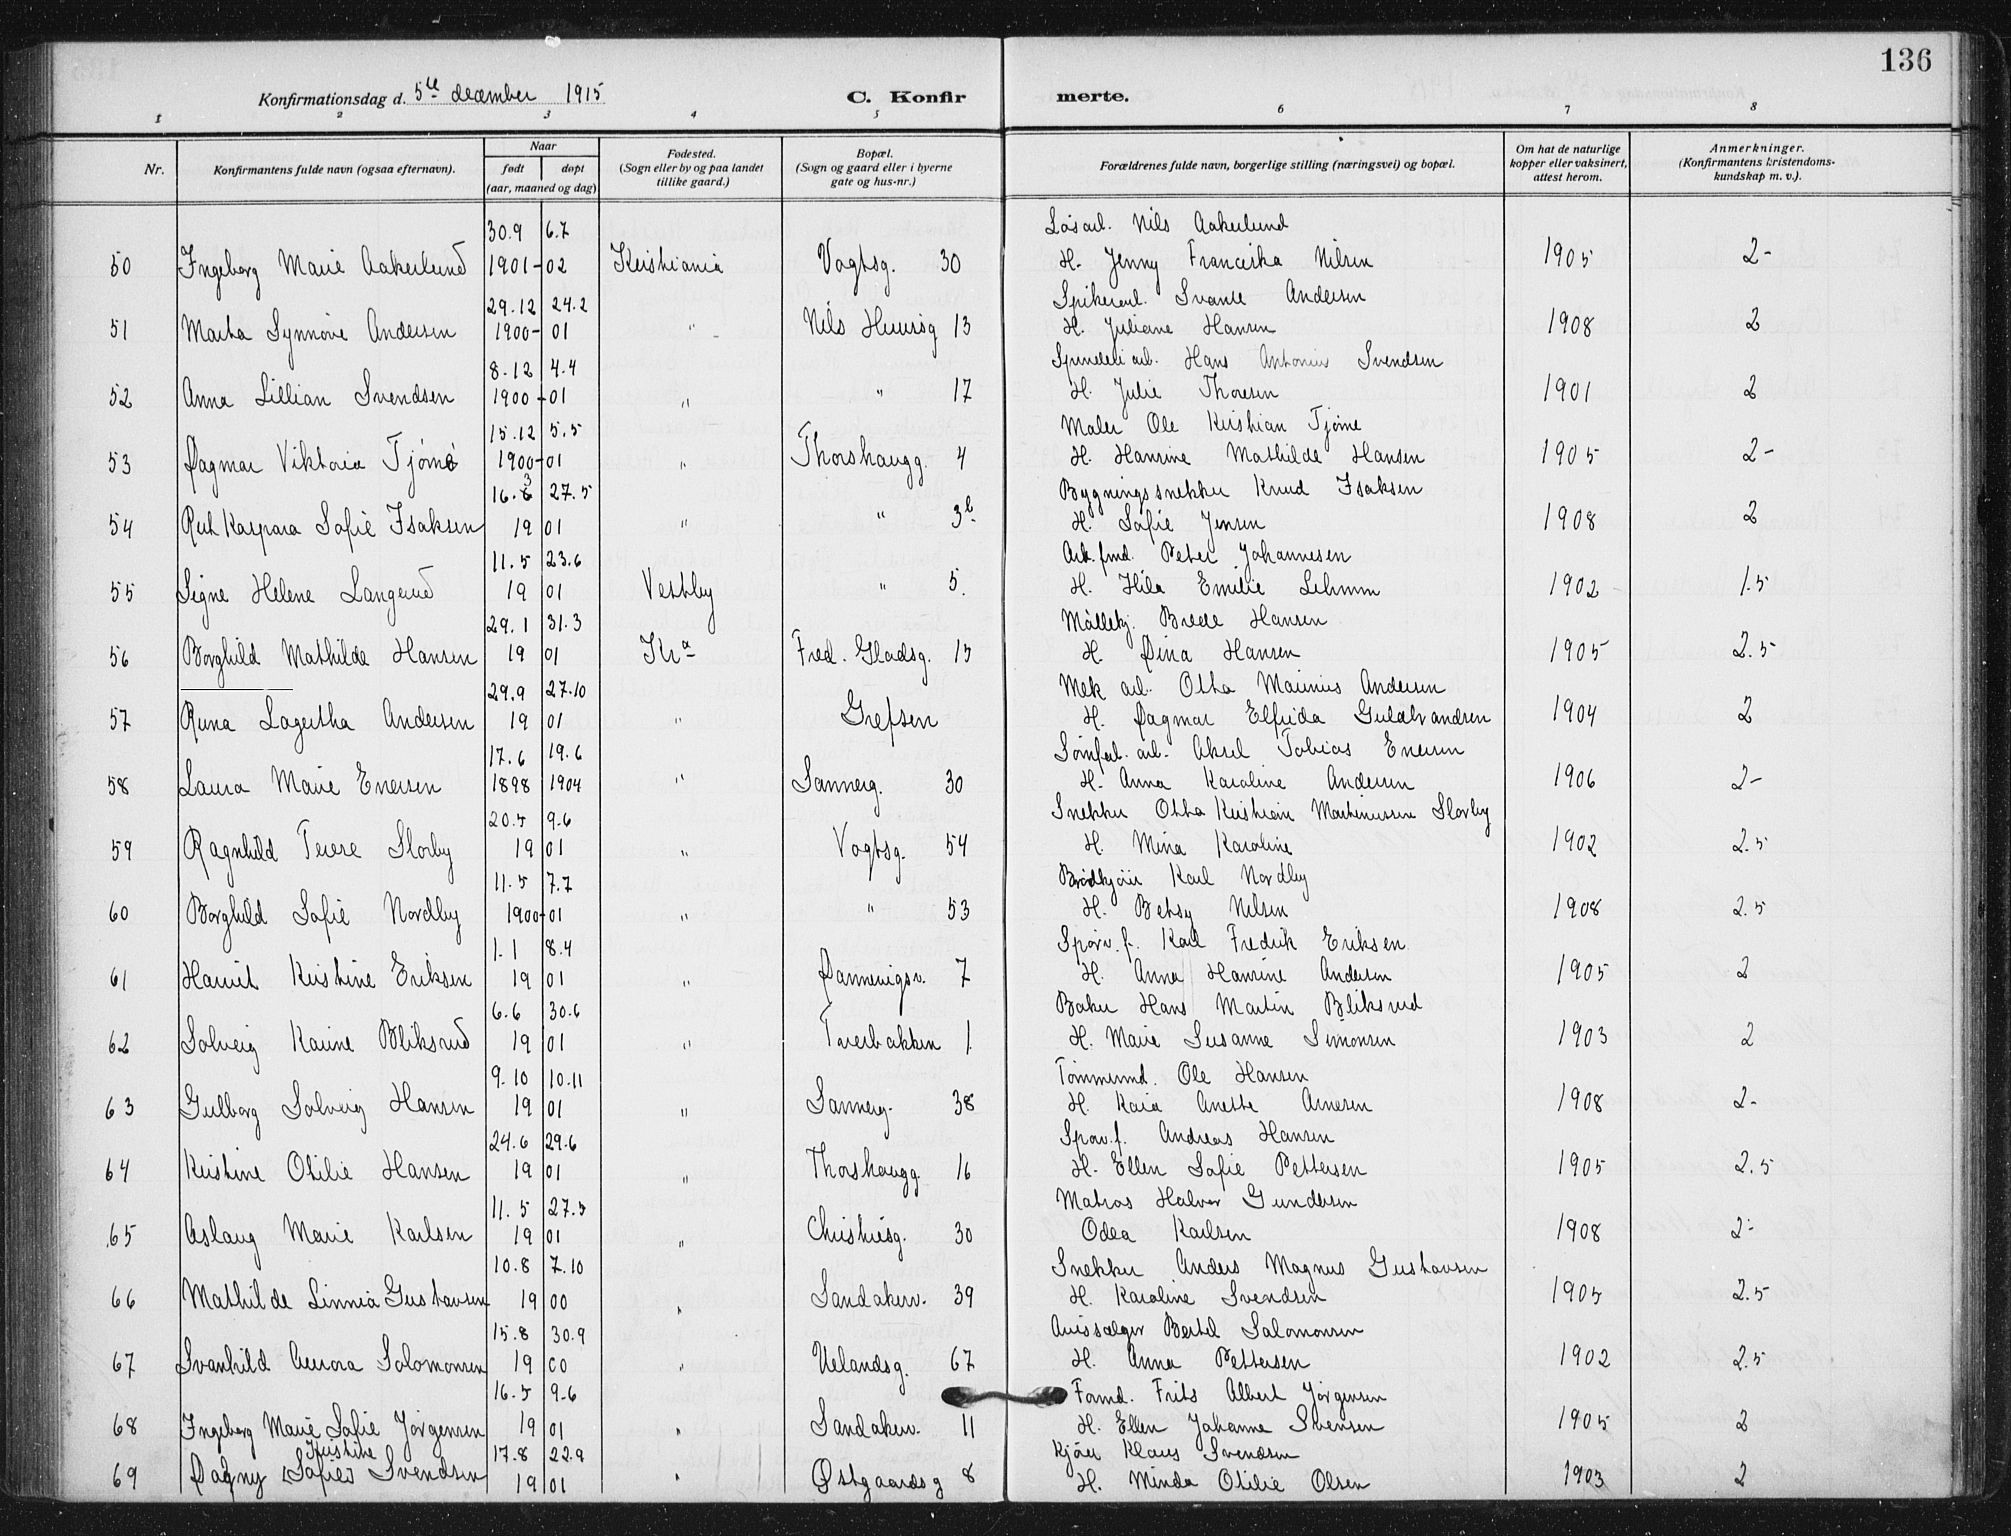 136
Konfirmationsdag d. 5te december 1915 C. Konfirmerte.
1 2 3 4 5 6 7 8
Nr. Konfirmantens fulde navn (ogsaa efternavn). Naar født døpt (aar, maaned og dag) Fødested. (Sogn eller by og paa landet tillike gaard.) Bopæl. (Sogn og gaard eller i byerne gate og hus-nr.) Forældrenes fulde navn, borgerlige stilling (næringsvei) og bopæl. Om hat de naturlige kopper eller vaksinert, attest herom. Anmerkninger. (Konfirmantens kristendoms-kundskap m. v.).
30.9 6.7 Løsarb. Nils Aakerlund
50 Ingeborg Marie Aakerlund 1901-02 Kristiania Vogtsg. 30 H. Jenny Franciska Nilsen 1905 2-
29.12 24.2 Spikerarb. Svante Andersen
51 Marta Synnøve Andersen 1900-01 " Nils Huusg 13 H. Juliane Hansen 1908 2
8.12 4.4 Spinderiarb. Hans Antonius Svendsen
52 Anna Lillian Svendsen 1900-01 " " 17 H. Julie Thoresen 1901 2
15.12 5.5 Maler Ole Kristian Tjørne
53 Dagmar Viktoria Tjørne 1900-01 " Thorshaugg. 4 H. Hansine Mathilde Hansen 1905 2-
16.3 27.5 Bygningssnekker Knud Isaksen
54 Rut Kaspara Sofie Isaksen 1901 " " 3b. H. Sofie Jensen 1908 2
11.5 23.6 Arb.fmd. Peter Johannesen
55 Signe Helene Langerud 1901 Vestby " 5. H. Hila Emilie 1902 1.5
29.1 31.3 Brede Hansen
56 Borghild Mathilde Hansen 1901 Kra Fred. Gladsg. 13 H. Dina Hansen 1905 2.5
29.9 27.10 Mek arb. Otto Marinius Andersen
57 Runa Lagertha Andersen 1901 " Grefsen H. Dagmar Elfrida Guldbrandsen 1904 2
17.6 19.6 arb. Aksel Tobias Enersen
58 Laura Marie Enersen 1898 1904 " Sannerg. 30 H. Anna Karoline Andersen 1906 2-
20.5 9.6 Snekker Otto Kristian Martinussen Slorby
59 Ragnhild Terese Slorby 1901 " Vogtsg. 54 H. Mina Karoline 1902 2.5
11.5 7.7 Brødkjører Karl Nordby
60 Borghild Sofie Nordby 1900-01 " " 53 H. Betsy Nilsen 1908 2.5
1.1 8.4 Sporv.f. Karl Fredrik Eriksen
61 Harriet Kristine Eriksen 1901 " Dannevigsv. 7 H. Anna Hansine Andersen 1905 2
6.6 30.6 Baker Hans Martin Bliksrud
62 Solveig Karine Bliksrud 1901 " Tverbakken 1 H. Marie Susanne Simonsen 1903 2
9.10 10.11 Tømmermd. Ole Hansen
63 Gulborg Solveig Hansen 1901 " Sannerg. 38 H. Kaia Anette Arnesen 1908 2-
24.6 29.6 Sporv.f. Andreas Hansen
64 Kristine Otilie Hansen 1901 " Thorshaugg. 16 H. Ellen Sofie Pettersen 1905 2.5
11.5 27.5 Matros Halvor Gundersen
65 Aslaug Marie Karlsen 1901 " Christiesg. 30 Odea Karlsen 1908 2-
10.8 7.10 Snekker Anders Magnus Gustavsen
66 Mathilde Linnea Gustavsen 1900 " Sandakerv. 39 H. Karoline Svendsen 1905 2.5
15.8 30.9 Avissælger Bertel Salomonsen
67 Svanhild Aurora Salomonsen 1900 " Uelandsg. 67 H. Anna Pettersen 1902 2.5
16.5 9.6 Formd. Frits Albert Jørgensen
68 Ingeborg Marie Sofie Jørgensen 1901 " Sandakerv. 11 H. Ellen Johanne Svensen 1905 2
Kristine 17.8 22.9 Kjører Klaus Svendsen
69 Dagny Sofie Svendsen 1901 " Østgaardsg 8 H. Minda Otilie Olsen 1903 2